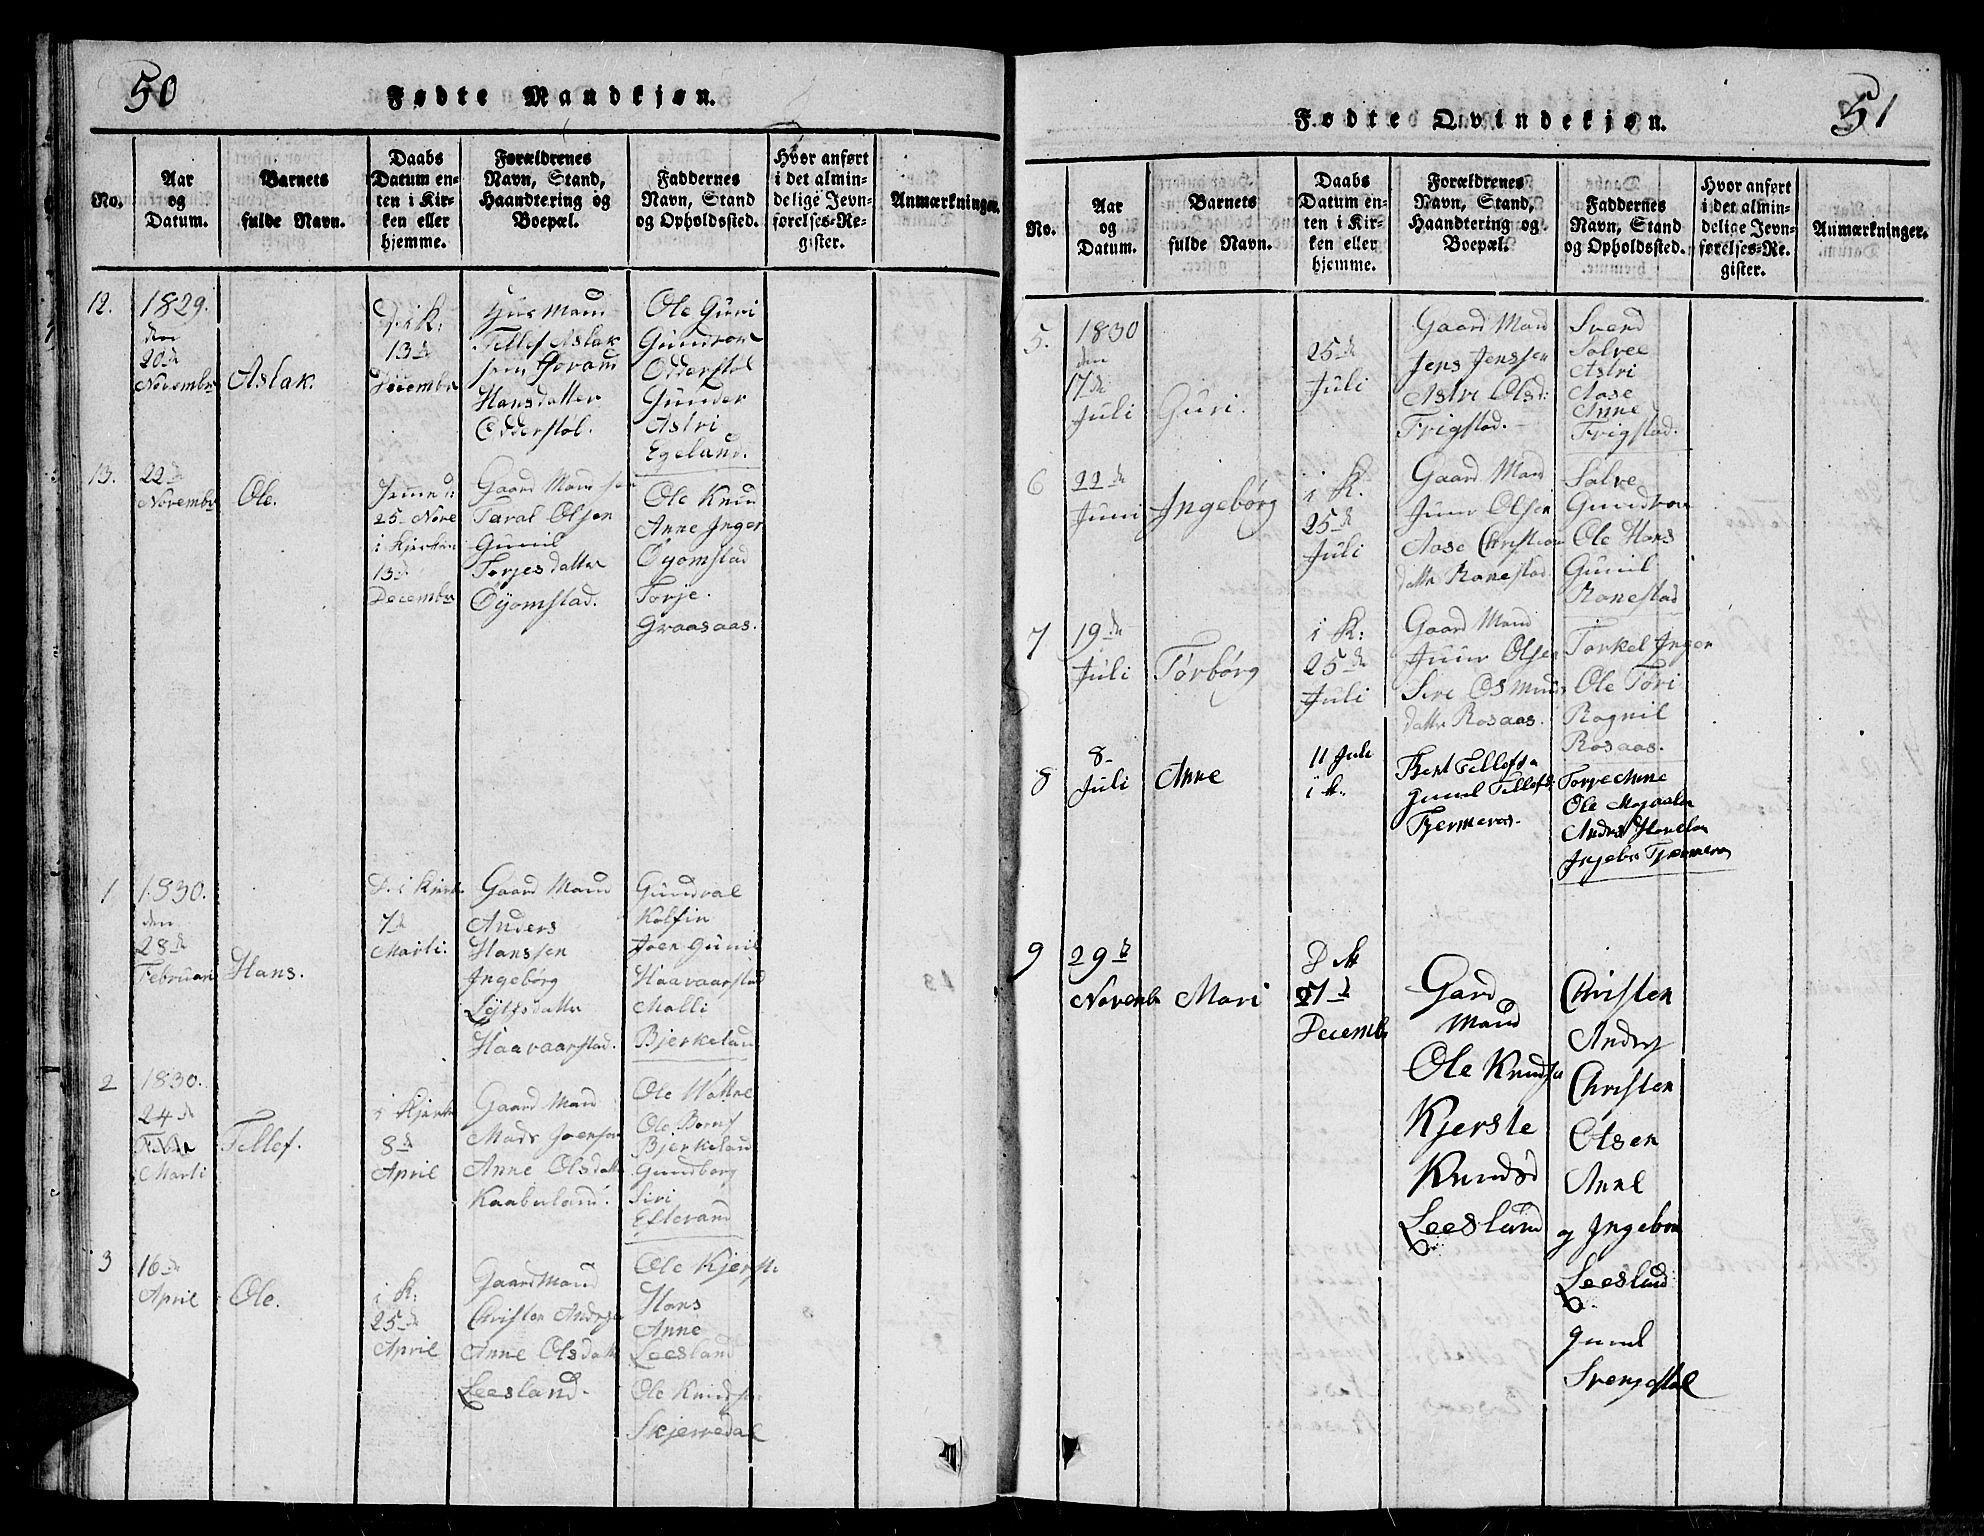 50
Fødte Mandkjøn.
No.
Aar
og
Datum.
Barnets
fulde Navn.
Daabs
Datum en-
ten i Kir-
ken eller
hjemme.
Forældrenes
Navn, Stand,
Haandtering og
Boepæl.
Faddernes
Navn, Stand
og Opholdssted.
Hvor anført
i det almin-
delige Jevn-
førelses-Re-
gister.
Anmærkninger.
12.
1829.
den
20de
Novembr
Aslak.
D. i K:
13de
Decembr
Huus Mand
Tellef Aslak
sen
Hansdatter
Odderstøl.
Ole Guri
Gundror
Odderstøl
Gunder
Astri
Egeland.
13.
22de
Novembr
Ole.
25 Nove
i Kjerken
13de
Decembr
Gaard Mand
Taral Olsen
Gunil
Torjesdatter
Øyomstad.
Ole Knud
Anne Inger
Øyomstad
Torje.
Graasaas.
1
1830.
den
28de
Februari
Hans.
D. i Kjerk.
7de
Marti.
Gaard Mand
Anders
Hanssen
Ingebørg
Haavaarstad.
Gundval
Kolfin
Joen Gunil
Haavaarstad
Malli
Bjerkelan
2
1830.
24de
Marti
Tellef.
i Kjerke
8de
April
Gaard Mand
Mads Joensen
Anne Olsdatt
Kaabuland.
Ole
Ole
Bjerkelan
Gundborg
Siri
Eftevand
3
16de
April
Ole.
i K:
25de
April
Gaard Mand
Christen Andrs
Anne Olsdatt
Leesland.
Ole Kjerst
Hans
Anne
Leesland
Ole Knuds
Skjerredal
51
Fødte Qvindekjøn.
No.
Aar
og
Datum.
Barnets
fulde Navn.
Daabs
Datum en-
ten i Kir-
ken eller
hjemme.
Forældrenes
Navn, Stand,
Haandtering og
Boepæl.
Faddernes
Navn, Stand
og Opholdssted.
Hvor anført
i det almin-
delige Jevn-
førelses-Re-
gister.
Anmærkninger.
5.
1830
den
17de
Juli
Guri.
25de
Juli
Gaard Mand
Jens Jenssen
Astri Olsd:
Frigstad.
Svend
Solvee
Astri
Aase
Anne
Frigstad.
6
22de
Juni
Ingebørg
i K.
25de
Juli
Gaard Mand
Juur Olsen
Aase Christian
datte Ranestad
Salve
Gundror
Ole Hans
Gunil
Ranestad
7
19de
Juli
Tørbørg
i K:
25de
Juli
Gaard Mand
Juur Olsen
Sire Osmunds
datte Rosaas.
Torkel Inger
Ole Tori
Ragnil
Rosaas.
8
8-
Juli
Anne
11 Juli
i K.
Bert Tellefsn
Gunil Tellefsd
Tjermeros.
Torje Anne
Ole
9
29d
Novembr
Mari
D K
Decembr
Gard
Mand
Ole Knudsn
Kjerste
Knudsd
Leesland
Christen
Andrs
Christen
Olsen
Anne
og Ingebor
Leesland
Gunil